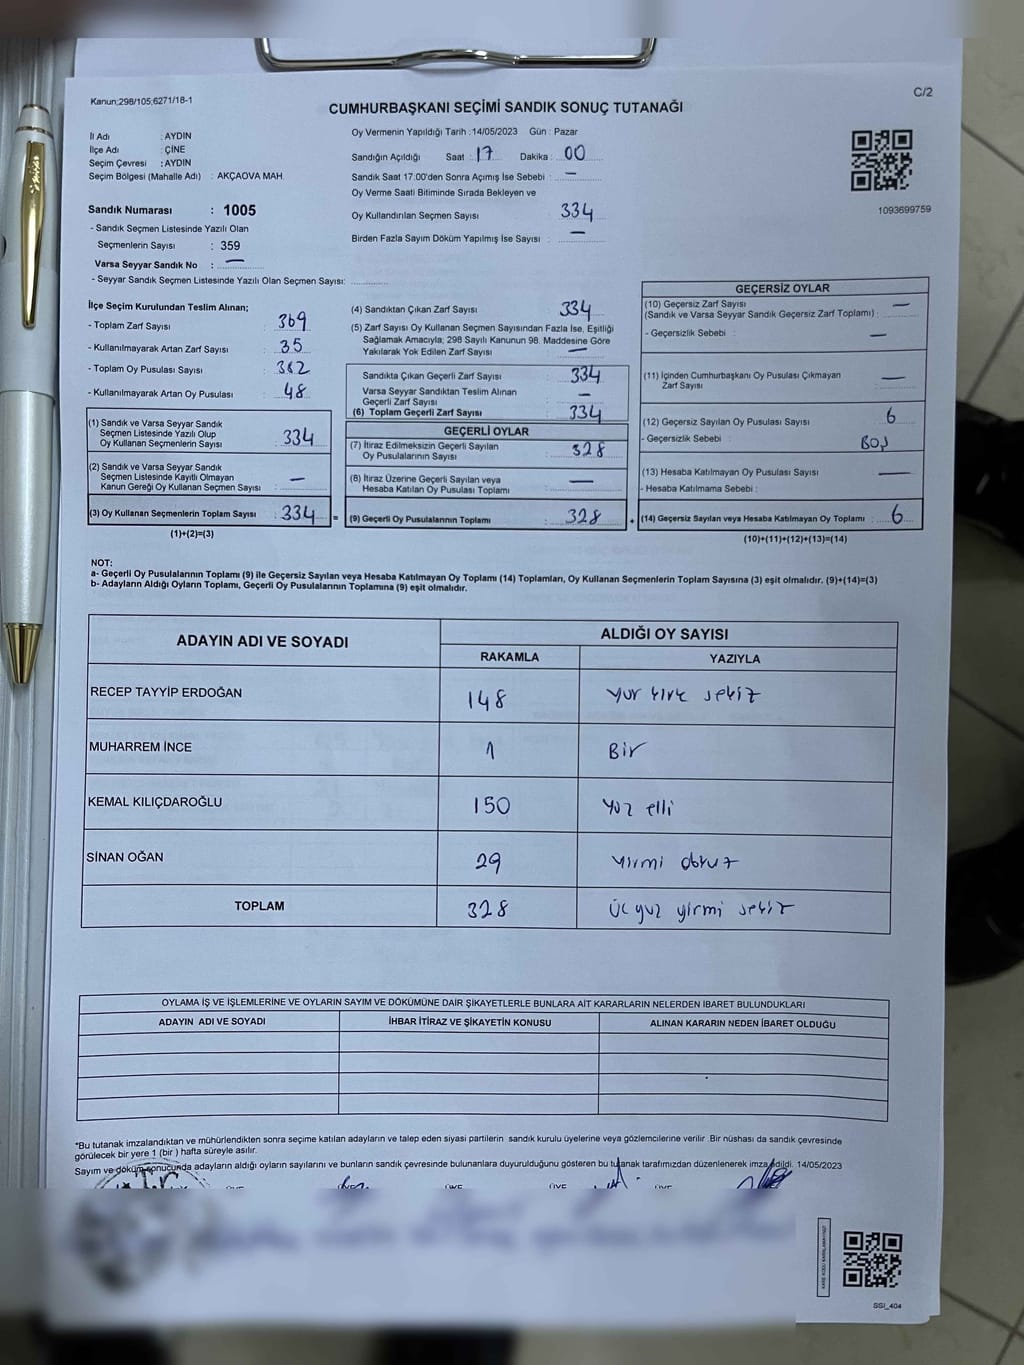 Kanun;298/105;6271/18-1
C/2
CUMHURBAŞKANI SEÇİMİ SANDIK SONUÇ TUTANAĞI
İl Adı : AYDIN
İlçe Adı : ÇİNE
Seçim Çevresi : AYDIN
Seçim Bölgesi (Mahalle Adı) : AKÇAOVA MAH.
Sandık Numarası : 1005
- Sandık Seçmen Listesinde Yazılı Olan
Seçmenlerin Sayısı : 359
Varsa Seyyar Sandık No : —
- Seyyar Sandık Seçmen Listesinde Yazılı Olan Seçmen Sayısı:
Oy Vermenin Yapıldığı Tarih :14/05/2023 Gün : Pazar
Sandığın Açıldığı Saat : 17 Dakika : 00
Sandık Saat 17:00'den Sonra Açımış İse Sebebi : —
Oy Verme Saati Bitiminde Sırada Bekleyen ve
Oy Kullandırılan Seçmen Sayısı : 334
Birden Fazla Sayım Döküm Yapılmış İse Sayısı : —
1093699759
İlçe Seçim Kurulundan Teslim Alınan;
- Toplam Zarf Sayısı : 369
- Kullanılmayarak Artan Zarf Sayısı : 35
- Toplam Oy Pusulası Sayısı : 382
- Kullanılmayarak Artan Oy Pusulası : 48
(1) Sandık ve Varsa Seyyar Sandık
Seçmen Listesinde Yazılı Olup
Oy Kullanan Seçmenlerin Sayısı : 334
(2) Sandık ve Varsa Seyyar Sandık
Seçmen Listesinde Kayıtlı Olmayan
Kanun Gereği Oy Kullanan Seçmen Sayısı : —
(3) Oy Kullanan Seçmenlerin Toplam Sayısı : 334
(1)+(2)=(3)
(4) Sandıktan Çıkan Zarf Sayısı : 334
(5) Zarf Sayısı Oy Kullanan Seçmen Sayısından Fazla İse, Eşitliği
Sağlamak Amacıyla; 298 Sayılı Kanunun 98. Maddesine Göre
Yakılarak Yok Edilen Zarf Sayısı : —
Sandıkta Çıkan Geçerli Zarf Sayısı : 334
Varsa Seyyar Sandıktan Teslim Alınan
Geçerli Zarf Sayısı : —
(6) Toplam Geçerli Zarf Sayısı : 334
GEÇERLİ OYLAR
(7) İtiraz Edilmeksizin Geçerli Sayılan
Oy Pusulalarının Sayısı : 328
(8) İtiraz Üzerine Geçerli Sayılan veya
Hesaba Katılan Oy Pusulası Toplamı : —
= (9) Geçerli Oy Pusulalarının Toplamı : 328
GEÇERSİZ OYLAR
(10) Geçersiz Zarf Sayısı
(Sandık ve Varsa Seyyar Sandık Geçersiz Zarf Toplamı) : —
- Geçersizlik Sebebi : —
(11) İçinden Cumhurbaşkanı Oy Pusulası Çıkmayan
Zarf Sayısı : —
(12) Geçersiz Sayılan Oy Pusulası Sayısı : 6
- Geçersizlik Sebebi : BOŞ
(13) Hesaba Katılmayan Oy Pusulası Sayısı : —
- Hesaba Katılmama Sebebi :
+ (14) Geçersiz Sayılan veya Hesaba Katılmayan Oy Toplamı : 6
(10)+(11)+(12)+(13)=(14)
NOT:
a- Geçerli Oy Pusulalarının Toplamı (9) ile Geçersiz Sayılan veya Hesaba Katılmayan Oy Toplamı (14) Toplamları, Oy Kullanan Seçmenlerin Toplam Sayısına (3) eşit olmalıdır. (9)+(14)=(3)
b- Adayların Aldığı Oyların Toplamı, Geçerli Oy Pusulalarının Toplamına (9) eşit olmalıdır.
ADAYIN ADI VE SOYADI
ALDIĞI OY SAYISI
RAKAMLA YAZIYLA
RECEP TAYYİP ERDOĞAN 148 Yüz kırk sekiz
MUHARREM İNCE 1 Bir
KEMAL KILIÇDAROĞLU 150 Yüz elli
SİNAN OĞAN 29 Yirmi dokuz
TOPLAM 328 Üç yüz yirmi sekiz
OYLAMA İŞ VE İŞLEMLERİNE VE OYLARIN SAYIM VE DÖKÜMÜNE DAİR ŞİKAYETLERLE BUNLARA AİT KARARLARIN NELERDEN İBARET BULUNDUKLARI
ADAYIN ADI VE SOYADI İHBAR İTİRAZ VE ŞİKAYETİN KONUSU ALINAN KARARIN NEDEN İBARET OLDUĞU
*Bu tutanak imzalandıktan ve mühürlendikten sonra seçime katılan adayların ve talep eden siyasi partilerin sandık kurulu üyelerine veya gözlemcilerine verilir .Bir nüshası da sandık çevresinde
görülecek bir yere 1 (bir ) hafta süreyle asılır.
Sayım ve döküm sonucunda adayların aldığı oyların sayılarını ve bunların sandık çevresinde bulunanlara duyurulduğunu gösteren bu tutanak tarafımızdan düzenlenerek imza edildi. 14/05/2023
T.C.
ÜYE ÜYE ÜYE
SSI_404